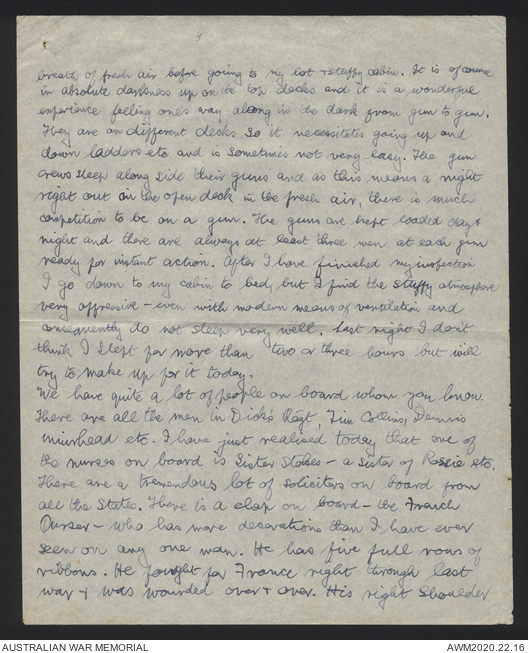 breath of fresh air before going to my hot & stuffy cabin. It is of course
in absolute darkness up on the top decks and it is a wonderful
experience feeling one's way along in the dark from gun to gun.
They are on different decks so it necessitates going up and
down ladders etc and is sometimes not very easy. The gun
crews sleep along side their guns and as this means a night
right out on the open deck in the fresh air, there is much
competition to be on a gun. The guns are kept loaded day &
night and there are always at least three men at each gun
ready for instant action. After I have finished my inspection
I go down to my cabin to bed, but I find the stuffy atmosphere
very oppressive - even with modern means of ventilation and
consequently do not sleep very well. Last night I don't
think I slept for more than two or three hours but will
try to make up for it today.
We have quite a lot of people on board whom you know.
There are all the men in Dick's Regt, Tim Collins, Dennis
Muirhead etc. I have just realised today that one of
the nurses on board is Sister Stokes - a sister of Rosie etc.
There are a tremendous lot of solicitors on board from
all the States. There is a chap on board - the French
Purser - who has more decorations than I have ever
seen on any one man. He has five full rows of
ribbons. He fought for France right through last
war & was wounded over & over. His right shoulder
AUSTRALIAN WAR MEMORIAL
AWM2020.22.16